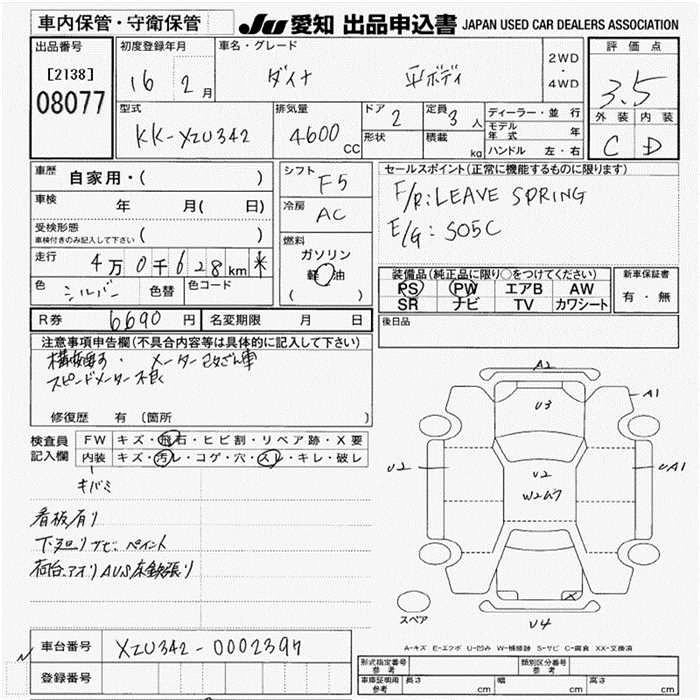 車内保管・守衛保管
JU 愛知 出品申込書 JAPAN USED CAR DEALERS ASSOCIATION
出品番号
[2138]
08077
初度登録年月
16 2 月
車名・グレード
ダイナ 平ボディ
2WD
・
4WD
評価点
3.5
外装 内装
C D
型式
KK-XZU342
排気量
4600 CC
ドア
2
形状
定員
3 人
積載
kg
ディーラー・並行
モデル年式 年
ハンドル 左・右
車歴
自家用・( )
車検 年 月( 日)
受検形態
車検付きのみ記入して下さい ( )
走行 4万0千628km *
色 シルバー 色替 色コード
シフト
F5
冷房
AC
燃料
ガソリン
軽油
( )
セールスポイント(正常に機能するものに限ります)
F/R:LEAVE SPRING
E/G: S05C
装備品(純正品に限り○をつけてください)
PS PW エアB AW
SR ナビ TV カワシート
新車保証書
有・無
後日品
R券 6690 円 名変期限 月 日
注意事項申告欄(不具合内容等は具体的に記入して下さい)
メーター改ざん車
スピードメーター不良
修復歴 有 (箇所 )
検査員
記入欄
FW キズ・飛石・ヒビ割・リペア跡・X要
内装 キズ・汚レ・コゲ・穴・スレ・キレ・破レ
キバミ
看板有り
下廻りサビ、ペイント
荷台、アオリAUS床鉄張り
A2
U3
A1
U2
U2
W2ムラ
UA1
X
U4
スペア
A-キズ E-エクボ U-凹み W-補修跡 S-サビ C-腐食 XX-交換済
車台番号 XZU342-0002397
登録番号
型式指定番号
参考
類別区分番号
参考
車庫証明用
参考
長さ cm 幅 cm 高さ cm